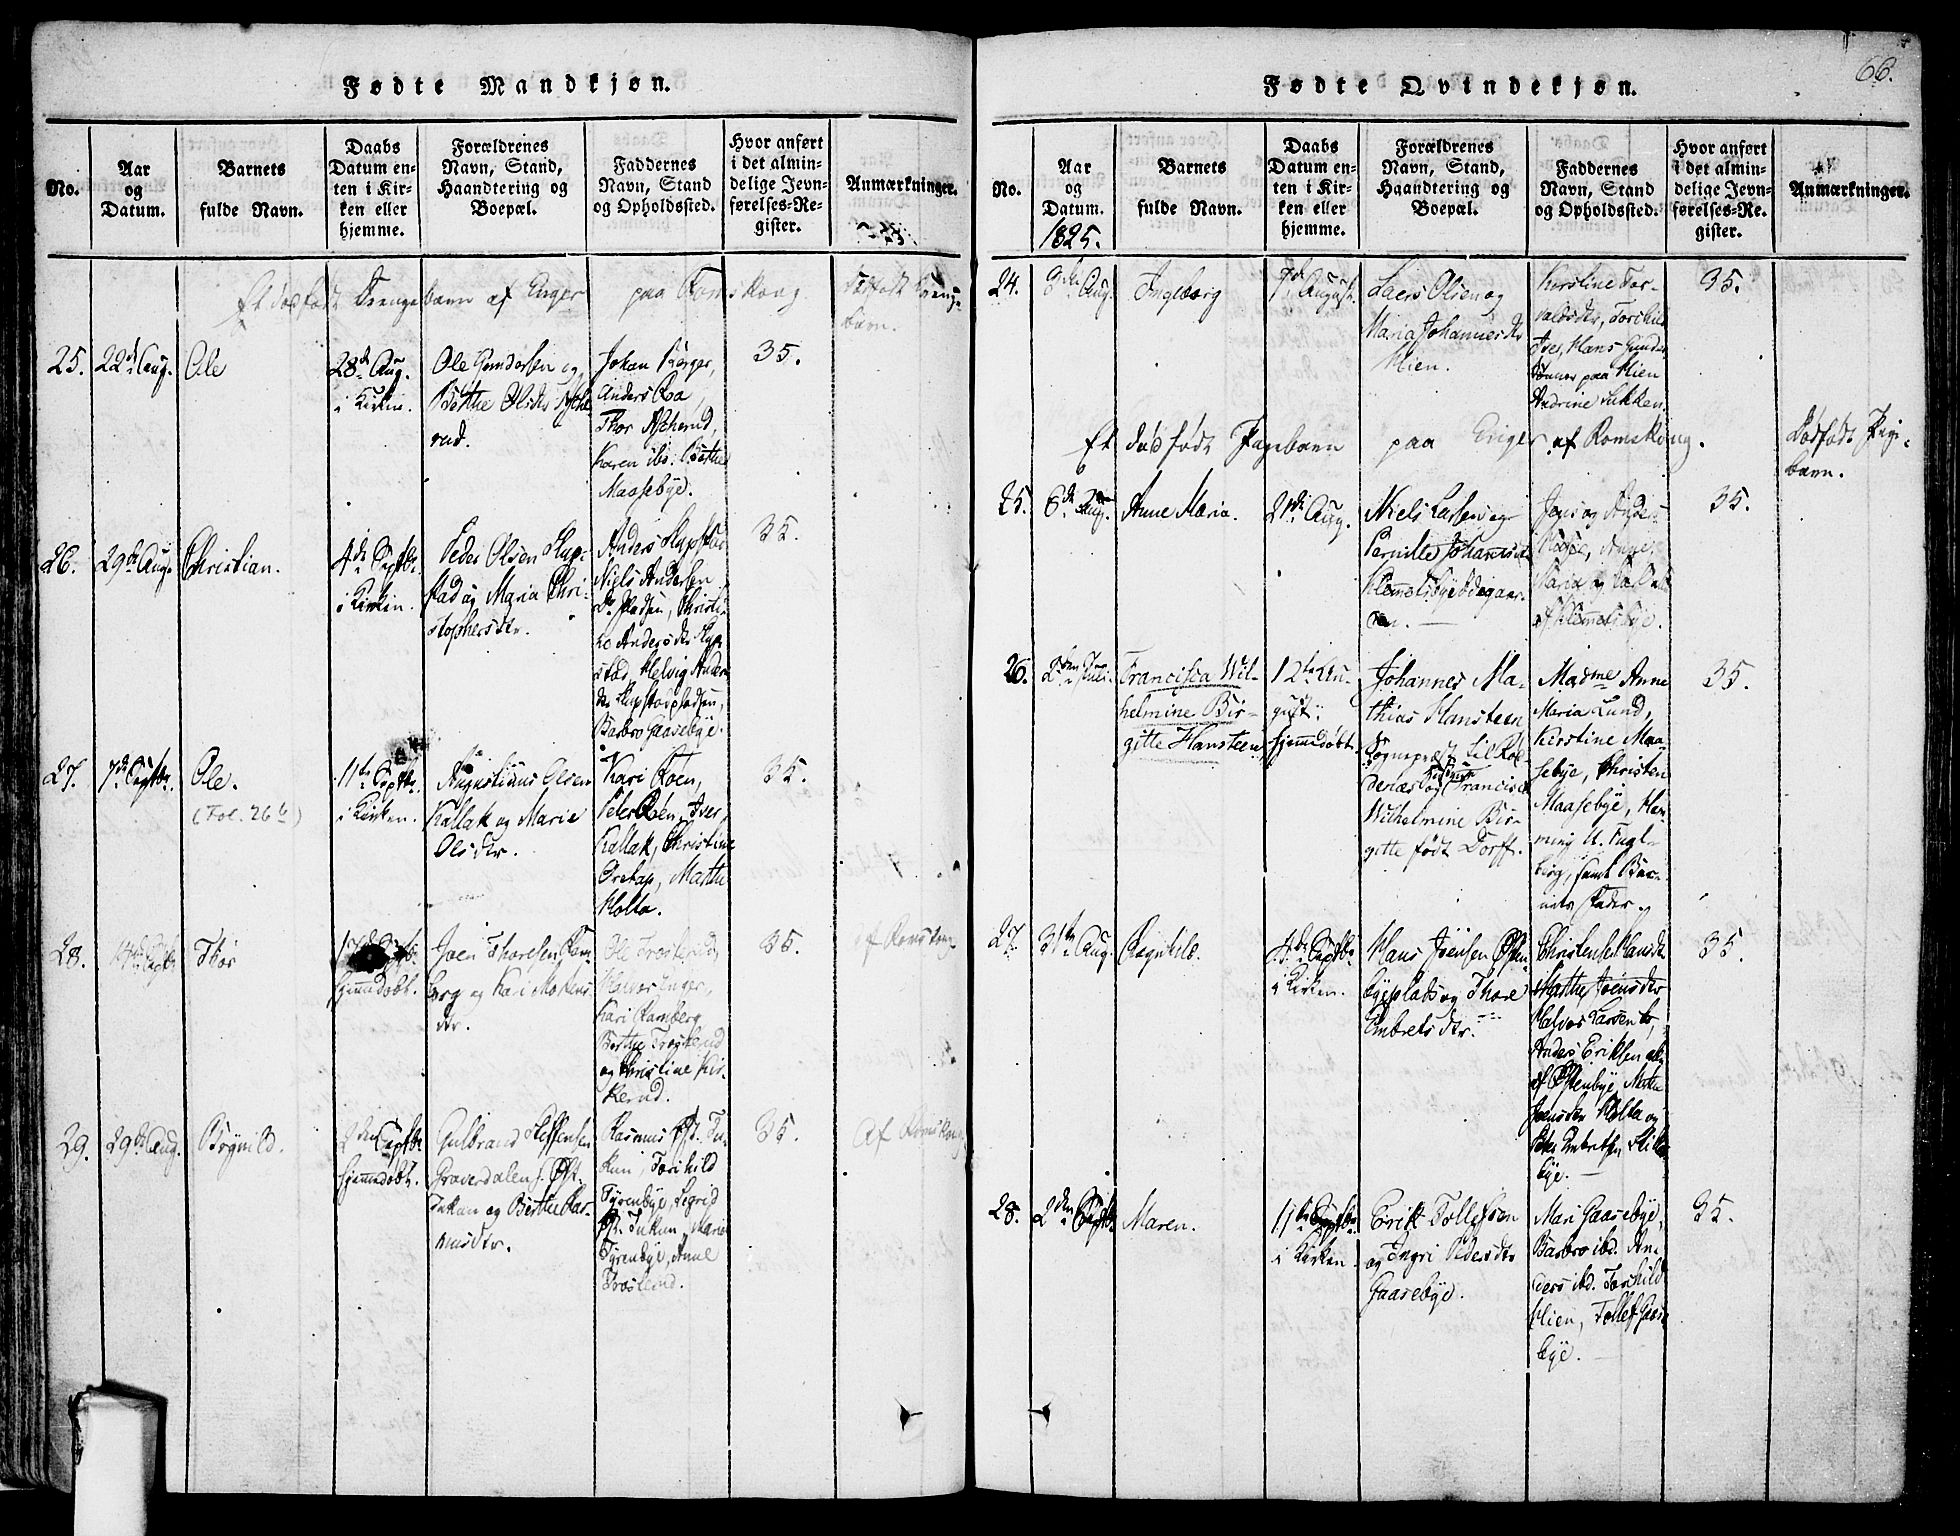 66.
Fødte Mandkjøn.
No.
Aar
og
Datum.
Barnets
fulde Navn.
Daabs
Datum en-
ten i Kir-
ken eller
hjemme.
Forældrenes
Navn, Stand,
Haandtering og
Boepæl.
Faddernes
Navn, Stand
og Opholdssted.
Hvor anført
i det almin-
delige Jevn-
førelses-Re-
gister.
Anmærkninger.
Et dødfødt Drengebarn af Enger paa Romskoug
dødfødt Drenge-
barn.
25.
22de Aug.
Ole
28de Aug.
i Kirken.
Ole Gundersen og
Berthe Olsdtr Asche-
rud.
Johan Berger,
Anders Roa,
Thor Ascherud,
Karen ibd. Berthe
Maasebye.
35.
26.
29de Aug.
Christian.
4de Septbr.
i Kirken.
Peder Olsen Slup-
stad og Maria Chri-
stophersdtr.
Anders Slupstad
Niels Andersen
Barbro Gaasebye.
35.
27.
7de Septbr.
Ole.
(Fol. 26 b)
11te Septbr.
i Kirken.
Augustinus Olsen
Kallak og Marie
Olsdtr.
Kari Roen,
Peter Roen, Iver
Kallak, Christine
Marthe
Holta.
35.
28.
Thor
hjemmedøbt.
Joen Thoresen Ram-
berg og Kari Mortens-
dtr.
Halvor Enger,
Kari Ramberg
Berthe Trosterud
og Christine Kir-
kerud.
35.
af Romskoug
29.
29de Aug.
Brynild.
2den Septbr
hjemmedøbt.
Gulbrand Steffensen
Graverdalen
Tukun og Berthe Ras-
musdtr.
Rasmus Øst. Tu-
kun, Torchild
Tyrenbye, Segrid
Øst. Tukun, Maria
Tyrenbye, Anne
Troslerud.
35.
Af Romskoug
Fødte Qvindekjøn.
No.
Aar
og
Datum.
1825.
Barnets
fulde Navn.
Daabs
Datum en-
ten i Kir-
ken eller
hjemme.
Forældrenes
Navn, Stand,
Haandtering og
Boepæl.
Faddernes
Navn, Stand
og Opholdssted.
Hvor anført
i det almin-
delige Jevn-
førelses-Re-
gister.
Anmærkninger.
24.
3die Aug.
Ingeborg
7de August.
Lars Olsen og
Maria Johannesdtr
Slien.
Kerstine Tor-
valdsdtr, Torchild
Iver, Hans Gunder-
sønner paa Slien
Andrine Lukken.
35.
Et dødfødt Pigebarn paa Enger af Romskoug.
Dødfødt Pige-
barn.
25.
6de Aug.
Anne Maria.
21de Aug.
Niels Larsen og
Pernille Johannesdtr
Klemmetsbye Ødegaar-
den.
Jens og Anders
Anne
Maria
af Klemmetsbye.
35.
26.
2den Juli.
Francisca Wil-
helmine Bir-
gitte Hansteen
12te Au-
gust
hjemmedøbt.
Johannes Ma-
thias Hansteen
Sognepræst til Rø-
denæs og Hustrue Francisca
Wilhelmine Bir-
gitte født Dorff.
Madme Anne
Maria Lund,
Kerstine Maa-
sebye, Christen
Maasebye, Hen-
ning U. Fugl-
berg, samt Bar-
nets Fader.
35.
27.
31te Aug.
Ragnhild.
4de Septbr
i Kirken.
Hans Joensen Østen-
byeplads og Thore
Embretsdtr.
Christen Hansdtr
Marthe Joensdtr
Halvor Larsen
Anders Eriksen alle
af Østenbye, Marthe
Joensdtr Holta og
Peder Embretsen
bye.
35.
28.
2den Septbr.
Maren.
11te Septbr
i Kirken.
Erik Tollefsen
og Ingri Pedersdtr
Gaasebye.
Mari Gaasebye,
Barbro ibd. An-
ders ibd. Torchild
Slien, Tollef Gaase-
bye.
35.